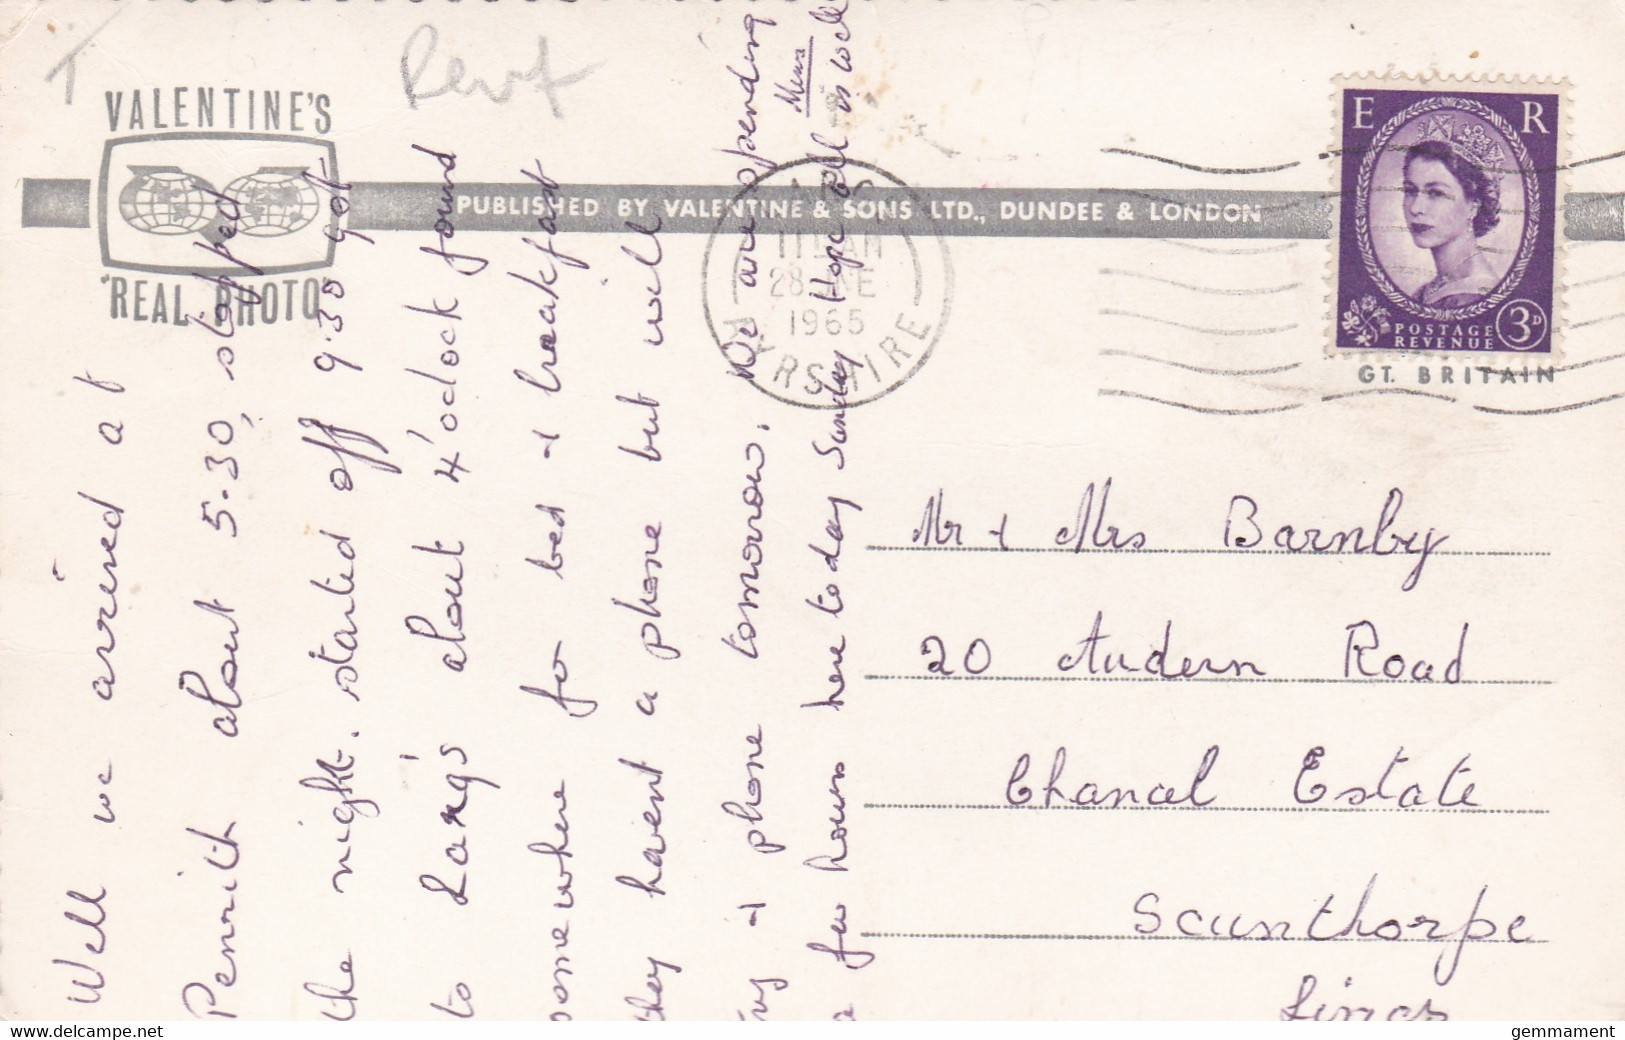 T
Renf
VALENTINE'S
"REAL PHOTO"
PUBLISHED BY VALENTINE & SONS LTD., DUNDEE & LONDON
11 AM
28 JNE
1965
AYRSHIRE
E R
POSTAGE
REVENUE
3D
GT. BRITAIN
Well we arrived at
Penrith about 5.30, stopped
the night. started off 9.30 got
to Lang's about 4'oclock found
somewhere for bed + breakfast
they havent a phone but will
try + phone tomorrow. We are spending
a few hours here today Sunday Hope all is well
Mr + Mrs Barnby
20 Audern Road
Chanal Estate
Scunthorpe
Lincs
gemmament